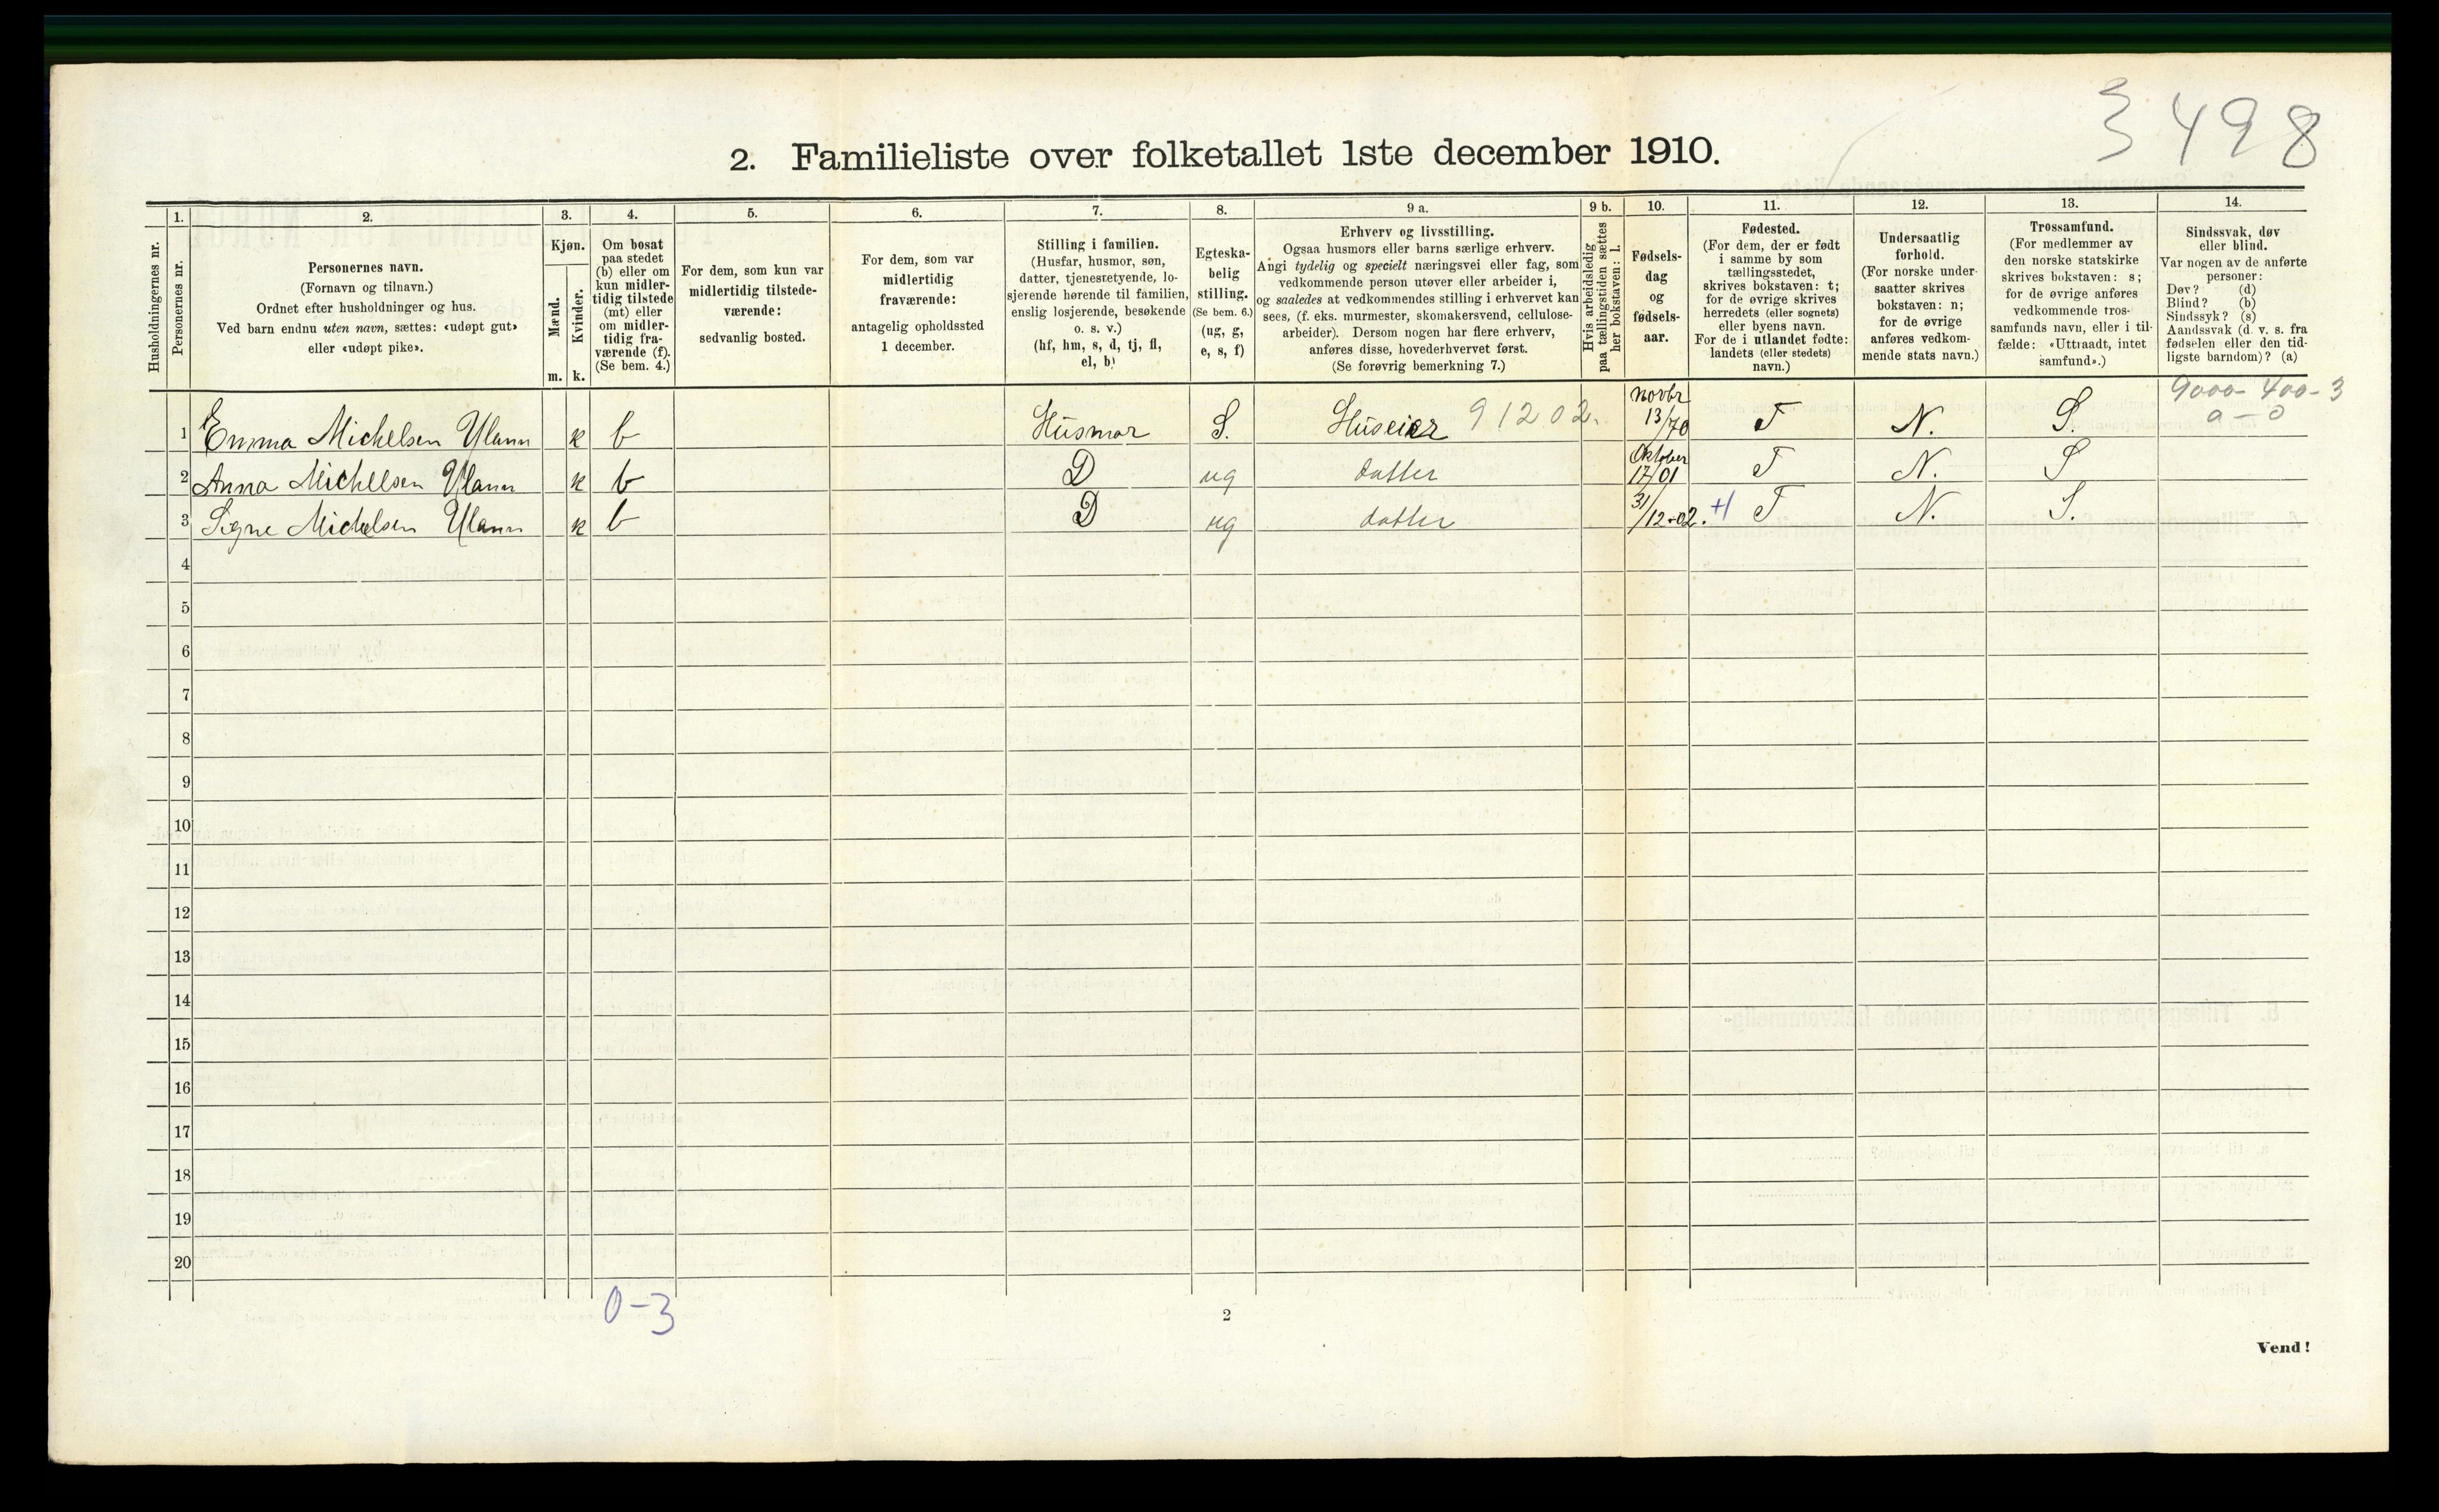 3498
2. Familieliste over folketallet 1ste december 1910.
Husholdningernes nr.
1.
Personernes nr.
2.
Personernes navn.
(Fornavn og tilnavn.)
Ordnet efter husholdninger og hus.
Ved barn endnu uten navn, sættes: «udøpt gut»
eller «udøpt pike».
3.
Kjøn.
Mænd.
Kvinder.
m. k.
4.
Om bosat
paa stedet
(b) eller om
kun midler-
tidig tilstede
(mt) eller
om midler-
tidig fra-
værende (f).
(Se bem. 4.)
5.
For dem, som kun var
midlertidig tilstede-
værende:
sedvanlig bosted.
6.
For dem, som var
midlertidig
fraværende:
antagelig opholdssted
1 december.
7.
Stilling i familien.
(Husfar, husmor, søn,
datter, tjenestetyende, lo-
sjerende hørende til familien,
enslig losjerende, besøkende
o. s. v.)
(hf, hm, s, d, tj, fl,
el, b)
8.
Egteska-
belig
stilling.
(Se bem. 6.)
(ug, g,
e, s, f)
9 a.
Erhverv og livsstilling.
Ogsaa husmors eller barns særlige erhverv.
Angi tydelig og specielt næringsvei eller fag, som
vedkommende person utøver eller arbeider i,
og saaledes at vedkommendes stilling i erhvervet kan
sees, (f. eks. murmester, skomakersvend, cellulose-
arbeider). Dersom nogen har flere erhverv,
anføres disse, hovederhvervet først.
(Se forøvrig bemerkning 7.)
9 b.
Hvis arbeidsledig
paa tællingstiden sættes
her bokstaven: l.
10.
Fødsels-
dag
og
fødsels-
aar.
11.
Fødested.
(For dem, der er født
i samme by som
tællingsstedet,
skrives bokstaven: t;
for de øvrige skrives
herredets (eller sognets)
eller byens navn.
For de i utlandet fødte:
landets (eller stedets)
navn.)
12.
Undersaatlig
forhold.
(For norske under-
saatter skrives
bokstaven: n;
for de øvrige
anføres vedkom-
mende stats navn.)
13.
Trossamfund.
(For medlemmer av
den norske statskirke
skrives bokstaven: s;
for de øvrige anføres
vedkommende tros-
samfunds navn, eller i til-
fælde: «Uttraadt, intet
samfund».)
14.
Sindssvak, døv
eller blind.
Var nogen av de anførte
personer:
Døv? (d)
Blind? (b)
Sindssyk? (s)
Aandssvak (d. v. s. fra
fødselen eller den tid-
ligste barndom)? (a)
9000-400-3
0-0
1 Emma Michelsen Ulann k b Husmor S. Huseier 91202. novbr 13/70 T N. S.
2 Anna Michelsen Ulann k b D ug datter Oktober 17/01 T N. S
3 Signe Michelsen Ulann k b D ug datter 31/12-02. +1 T N. S.
4
5
6
7
8
9
10
11
12
13
14
15
16
17
18
19
20
0-3
2
Vend!